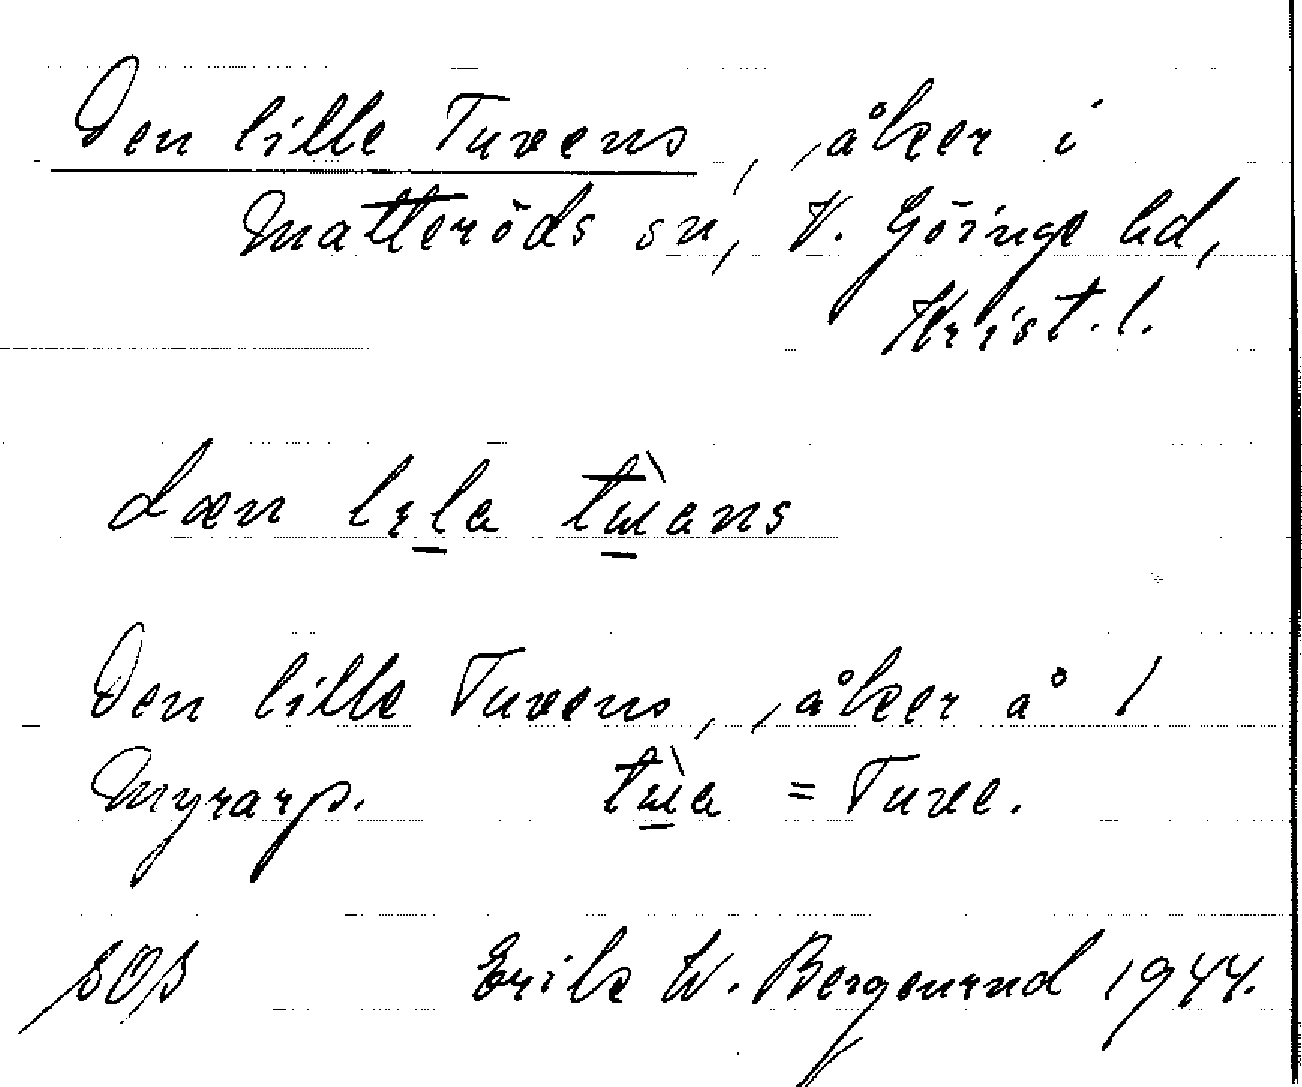 Den lille Tuvens, åker i
Matteröds sn, V. Göinge hd,
Krist. l.
dæn lɩla tɯ̀ans
Den lille Tuvens, åker å 1
Myrarp. tɯ̀a = Tuve.
SOS Erik W. Bergenrud 1944.